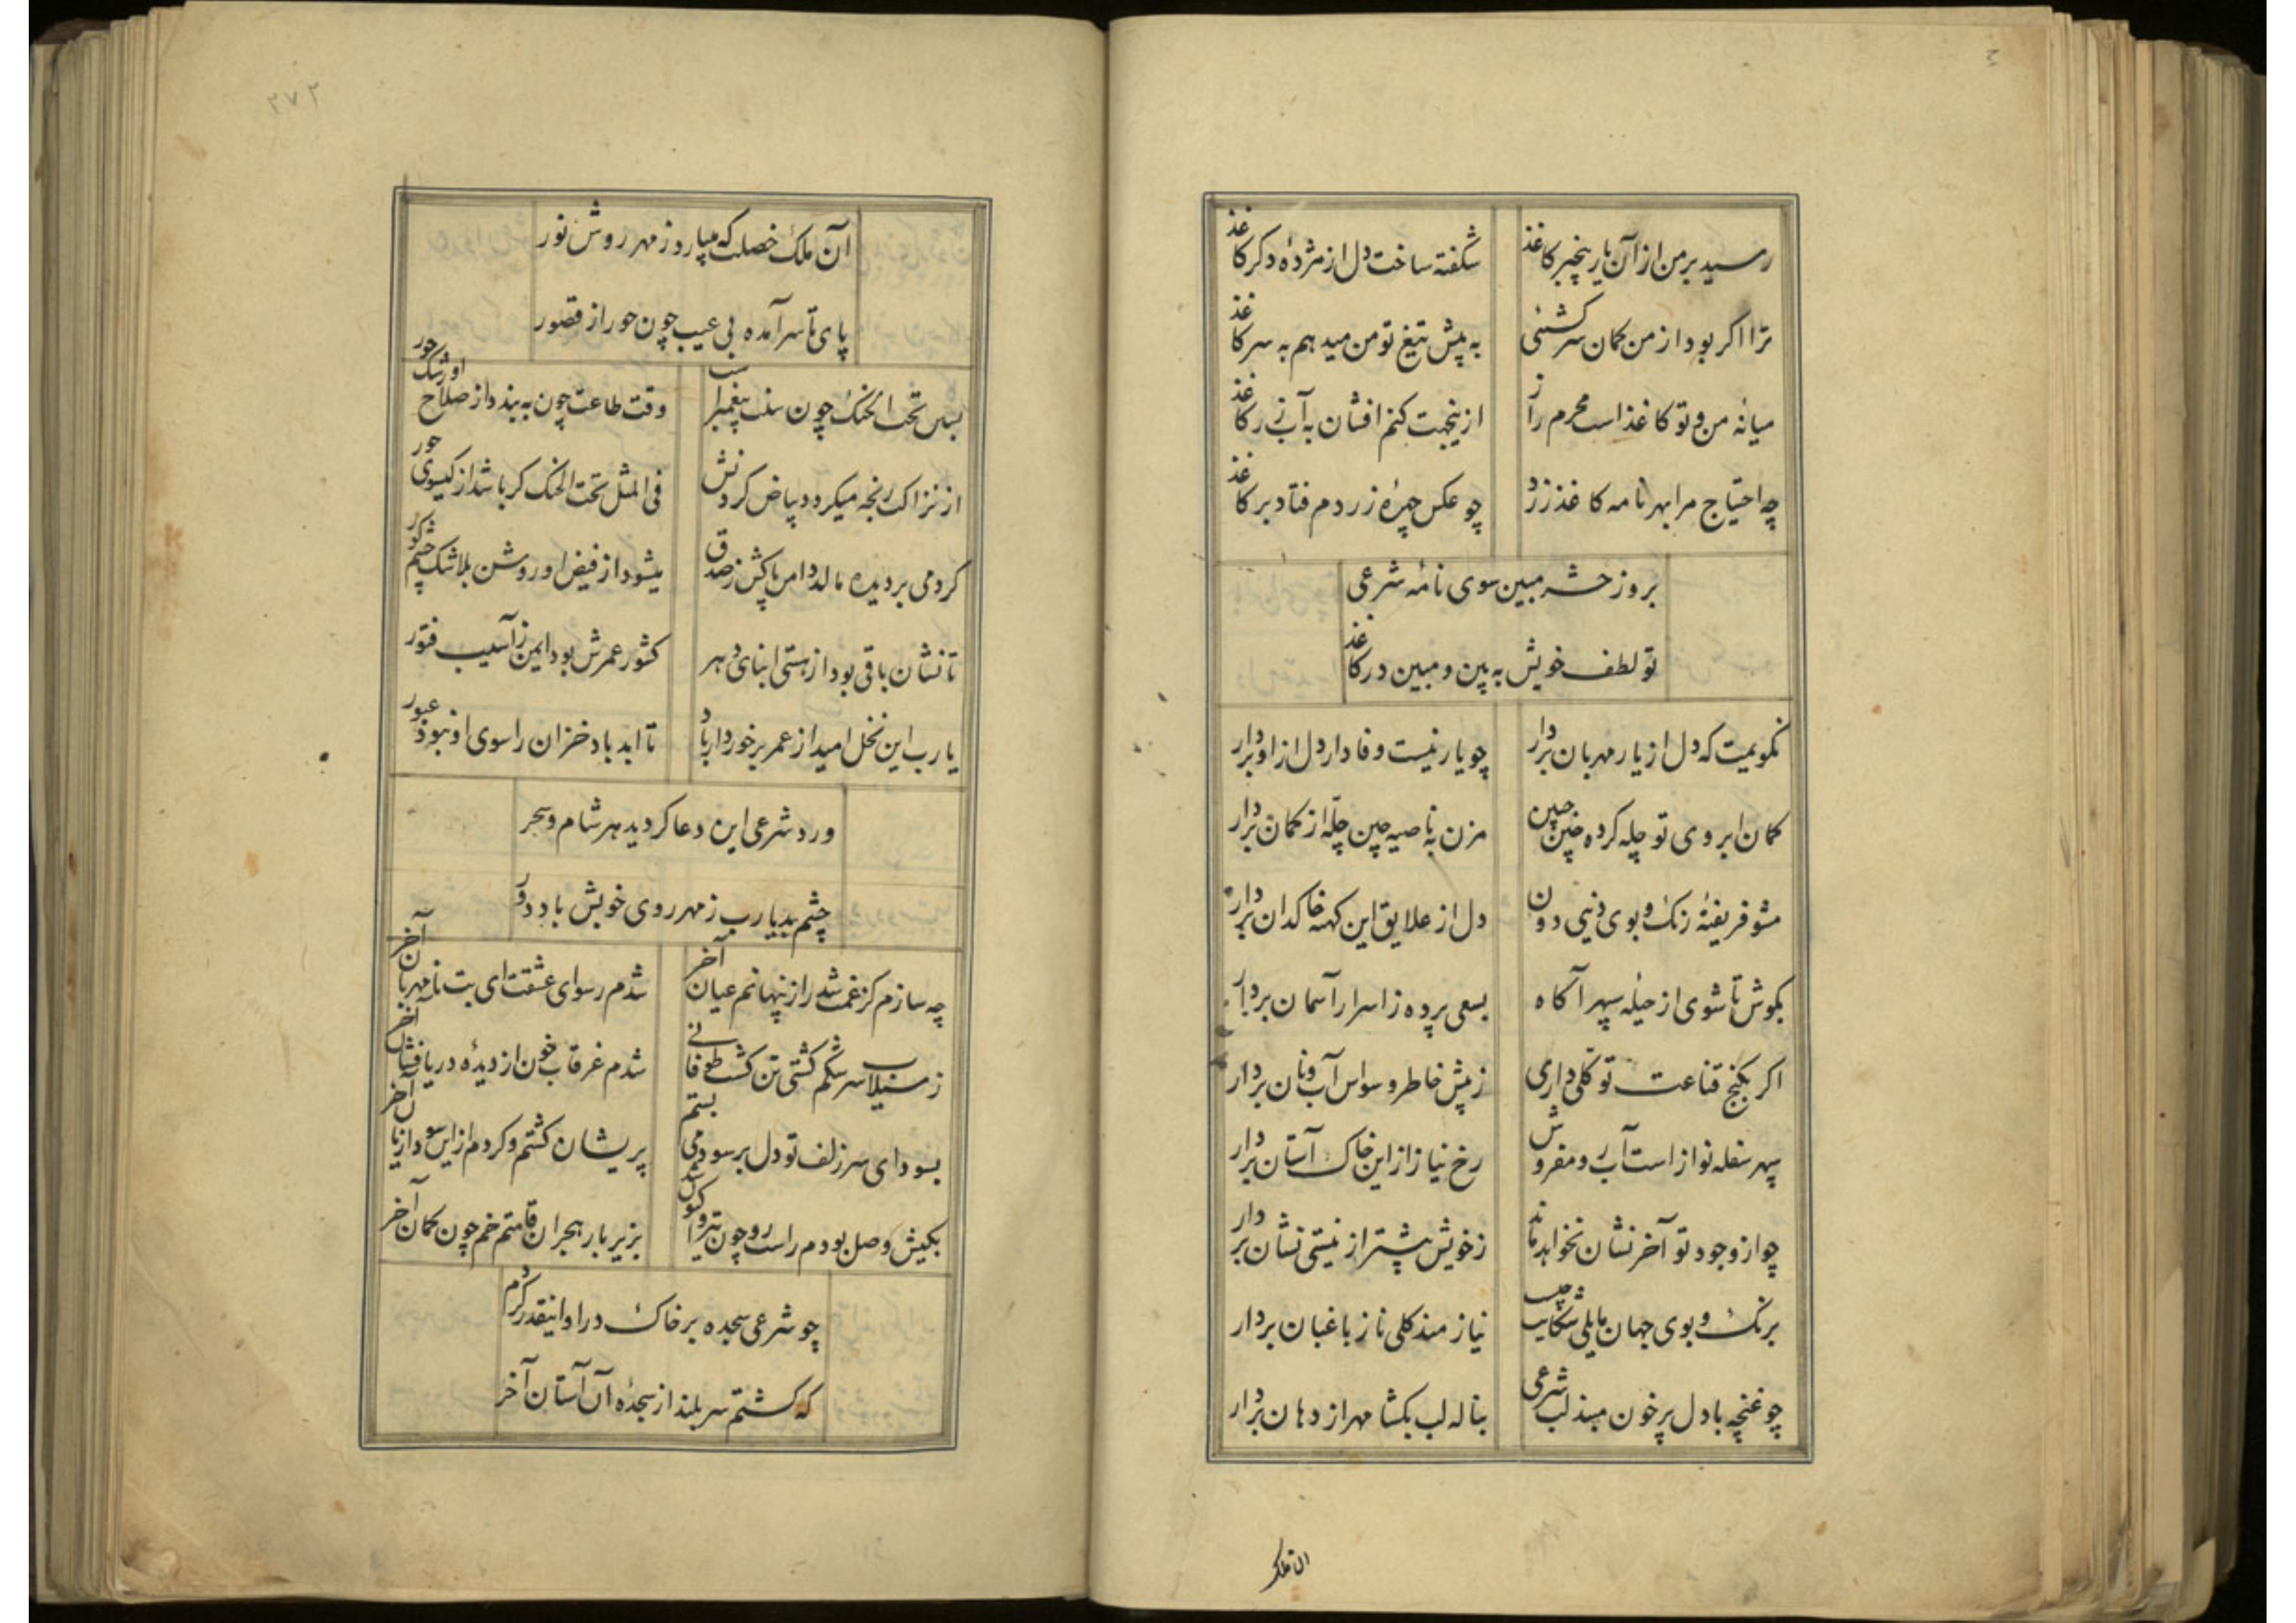 رسید بر من از آن یار بیخبر کاغذ
شکفته ساخت دل از مژدهٔ دکر کاغذ
ترا اکر بود از من کمان سرکشئی
به پیش تیغ تو من میدهم به سر کاغذ
میانه من و تو کاغذ است محرم راز
ازینجهت کنم افشان به آب زر کاغذ
چه احتیاج مرا بهر نامه کاغذ زرد
چو عکس چهرهٔ زردم فتاد بر کاغذ
بروز حشر مبین سوی نامهٔ شرعی
تو لطف خویش به بین و مبین در کاغذ
نکویمیت که دل از یار مهربان بردار
چو یار نیست وفادار دل از او بردار
کمان ابروی تو چله کرده چین چین
مزن به ناصیه چین چلّه از کمان بردار
مشو فریفتهٔ رنک و بوی دنیی دون
دل از علایق این کهنه خاکدان بردار
بکوش تا شوی از حیلهٔ سپهر آکاه
بسعی پرده ز اسرار آسمان بردار
اکر بکنج قناعت توکلی داری
ز پیش خاطر وسواس آب و نان بردار
سپهر سفله نواز است آب رو مفروش
رخ نیاز از این خاک آستان بردار
چو از وجود تو آخر نشان نخواهد ماند
ز خویش پیشتر از نیستی نشان بردار
برنک و بوی جهان مایلی شکایت چیست
نیاز مند کلی ناز باغبان بردار
چو غنچه با دل پر خون مبند لب شرعی
بناله لب بکشا مهر از دهان بردار
ان ملک
۲۷۲
آن ملک خصلت که میبارد ز مهر روش نور
پای تا سر آمده بی عیب چون حور از قصور
بس تحت الحنک چون سنت پیغمبر است
وقت طاعت چون به بندد از صلاح او رشک حور
از نزاکت رنجه میکردد بیاض کردنش
فی المثل تحت الحنک کر باشد از کیسوی حور
کر دمی بر دیده مالد دامن پاکش ز صدق
میشود از فیض او روشن بلا شک چشم کور
تا نشان باقی بود از هستی ابنای دهر
کشور عمرش بود ایمن ز آسیب فتور
یا رب این نخل امید از عمر برخوردار باد
تا ابد باد خزان را سوی او نبود عبور
ورد شرعی این دعا کردید هر شام و سحر
چشم بد یا رب ز مهر روی خوبش باد دور
چه سازم کز غمت شد راز پنهانم عیان آخر
شدم رسوای عشقت ای بت نامهربان آخر
ز سیلاب سرشکم کشتی تن کشت طوفانی
شدم غرقاب خون از دیدهٔ دریا فشان آخر
بسودای سر زلف تو دل بر سود می بستم
پریشان کشتم و کردم از این سودا زیان آخر
بکیش وصل بودم راست رو چون تیر و اکنون شد
بزیر بار هجران قامتم خم چون کمان آخر
چو شرعی سجده بر خاک در او اینقدر کردم
که کشتم سر بلند از سجدهٔ آن آستان آخر